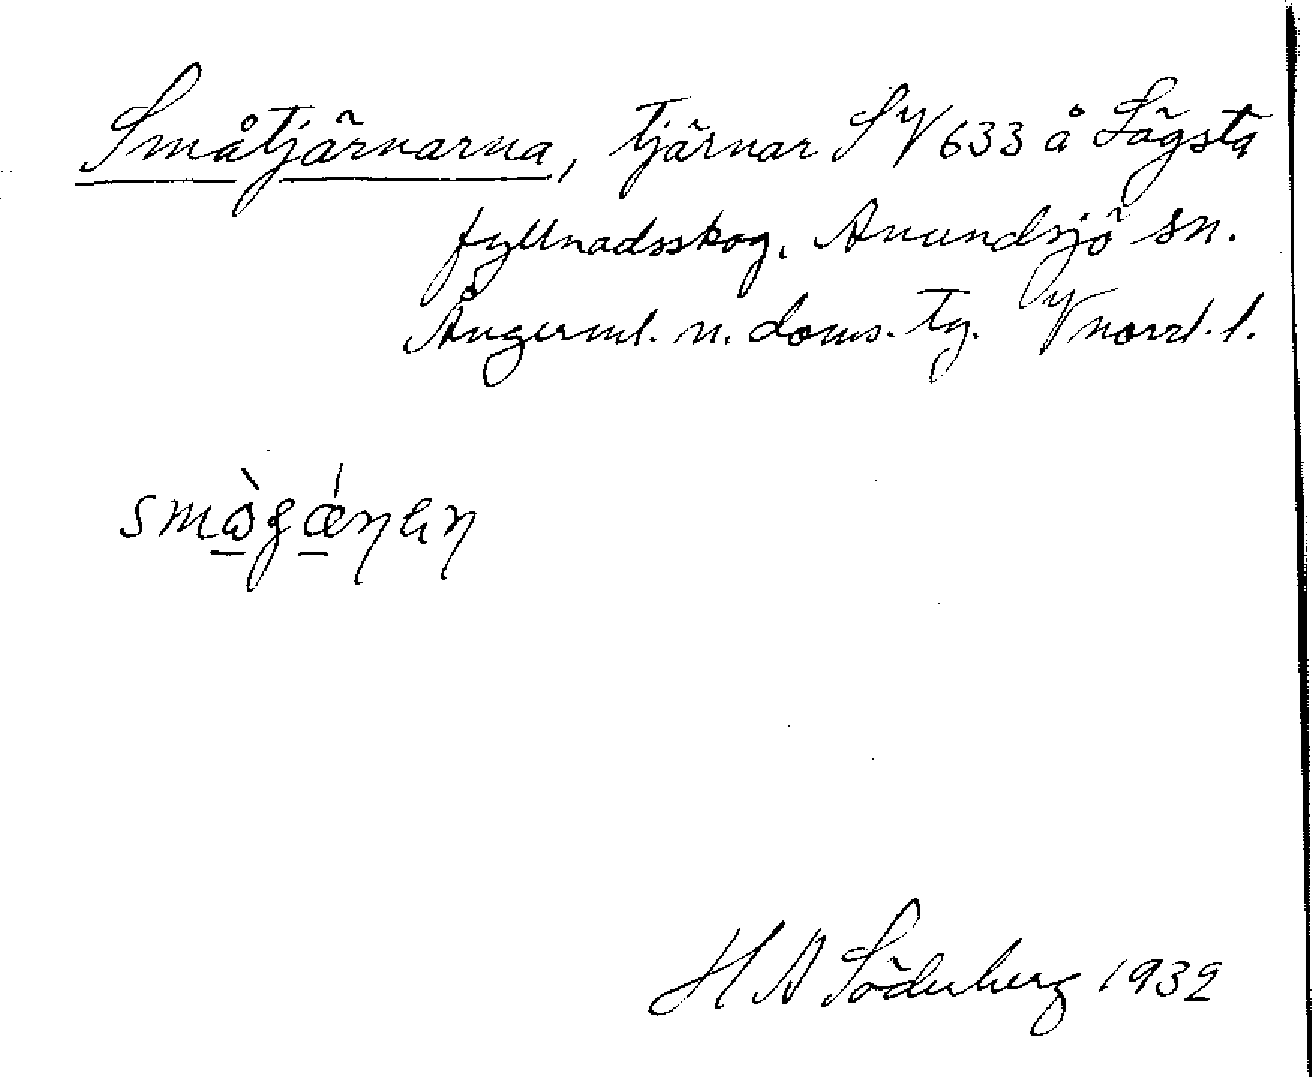 Småtjärnarna, tjärnar SV 633 å Sågsta
fyllnadsskog, Anundsjö sn.
Ångerml. n. doms. tg. V norrl. l.
H A Söderberg 1932